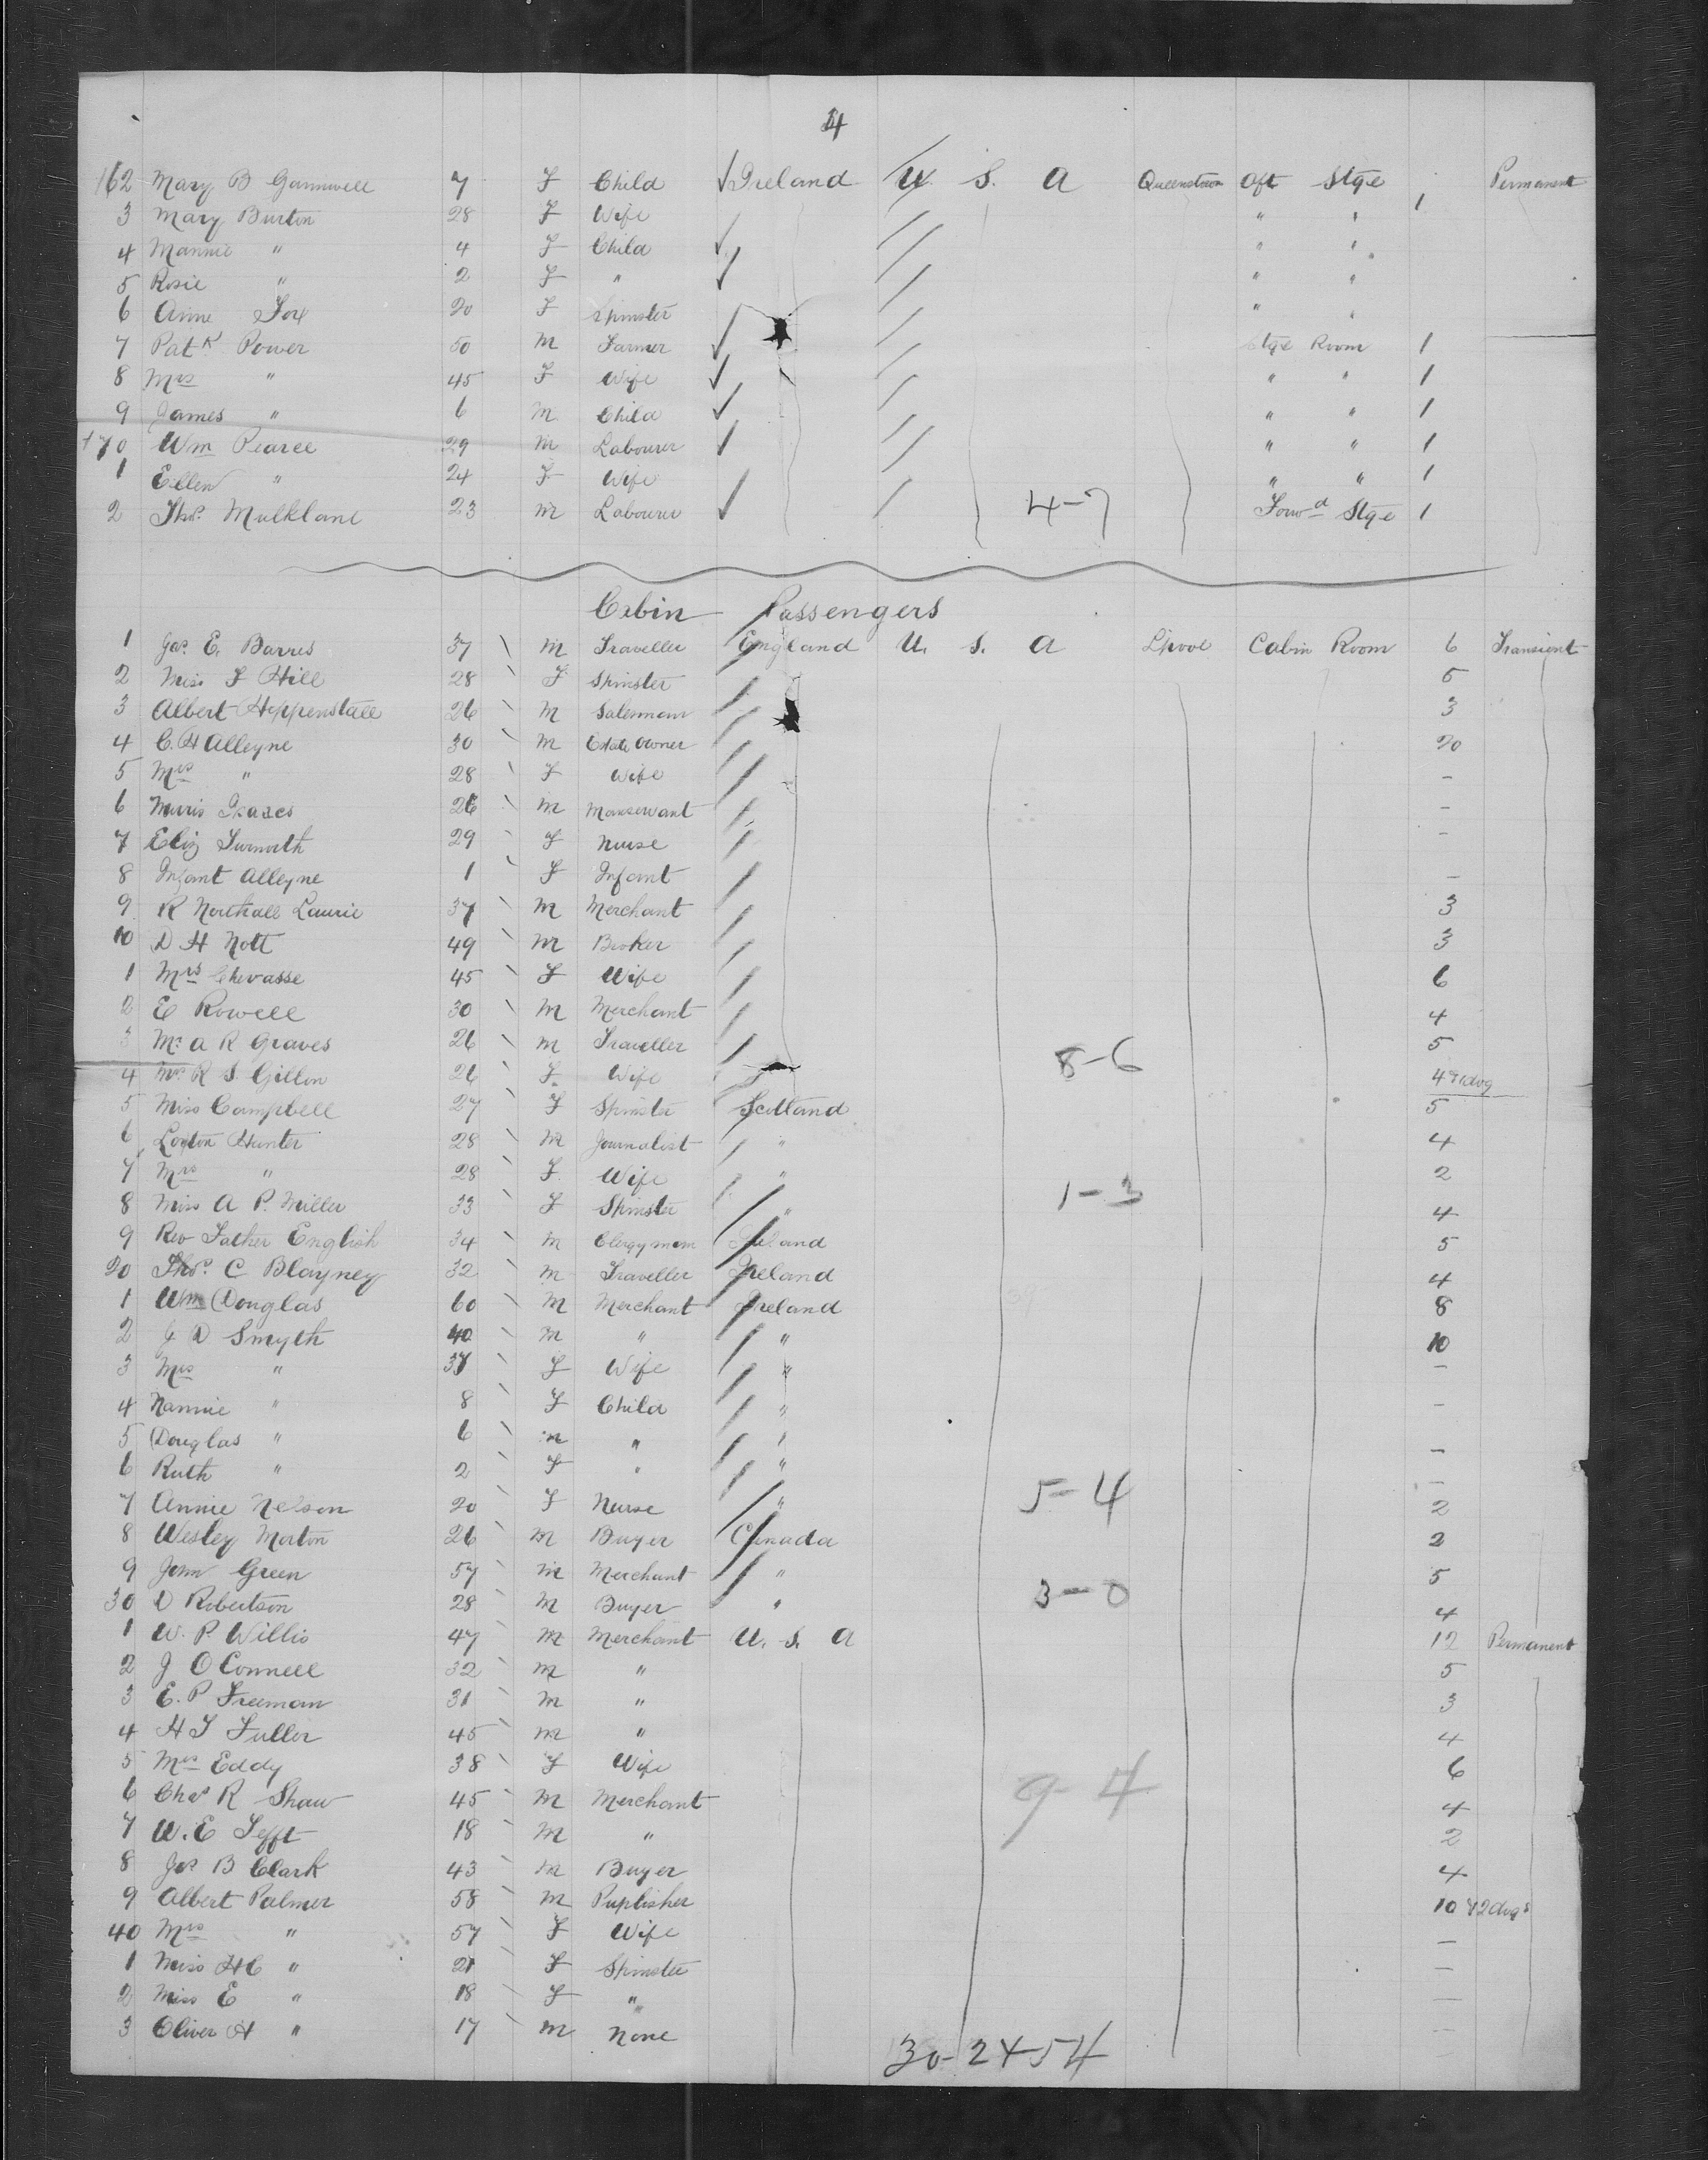 4
162 Mary B Gammell 7 F Child Ireland U. S. A Queenstown Aft Stge Permanent
3 Mary Burton 28 F Wife " " 1
4 Mannie " 4 F Child " "
5 Rosie " 2 F " " "
6 Anne Fox 20 F Spinster " "
7 Patk Power 50 M Farmer Stge Room 1
8 Mrs " 45 F Wife " " 1
9 James " 6 M Child " " 1
170 Wm Pearce 29 M Labourer " " 1
1 Ellen " 24 F Wife " " 1
2 Thos. Mulkland 23 M Labourer 4-7 Forwd Stge 1
Cabin Passengers
1 Jas. E. Barres 37 M Traveller England U. S. A L'pool Cabin Room 6 Transient
2 Miss F Hill 28 F Spinster 5
3 Albert Heppenstall 26 M Salesman 3
4 C. H Alleyne 30 M Estate Owner 20
5 Mrs " 28 F Wife -
6 Morris Isaacs 26 M Manservant -
7 Eliz 29 F Nurse -
8 Infant Alleyne 1 F Infant -
9 R Northall Laurie 37 M Merchant 3
10 D H Nott 49 M Broker 3
1 Mrs Chevasse 45 F Wife 6
2 E Rowell 30 M Merchant 4
3 Mr A R Graves 26 M Traveller 8-6 5
4 Mrs R S. Gillon 26 F Wife 4 & 1 dog
5 Miss Campbell 27 F Spinster Scotland 5
6 Loxton Hunter 28 M Journalist " 4
7 Mrs " 28 F Wife " 1-3 2
8 Miss A P. Miller 33 F Spinster " 4
9 Rev Father English 34 M Clergyman Ireland 5
20 Thos. C Blayney 32 M Traveller Ireland 4
1 Wm Douglas 60 M Merchant Ireland 8
2 J D Smyth 40 M " " 10
3 Mrs " 37 F Wife " -
4 Nannie " 8 F Child " -
5 Douglas " 6 M " " -
6 Ruth " 2 F " " -
7 Annie Nelson 20 F Nurse " 5-4 2
8 Wesley Morton 26 M Buyer Canada 2
9 John Green 57 M Merchant " 3-0 5
30 D Robertson 28 M Buyer " 4
1 W. P. Willis 47 M Merchant U. S. A 12 Permanent
2 J O Connell 32 M " 5
3 E. P Freeman 31 M " 3
4 H T Fuller 45 M " 4
5 Mrs Eddy 38 F Wife 9-4 6
6 Chas R Shaw 45 M Merchant 4
7 W. E Tefft 18 M " 2
8 Jas B Clark 43 M Buyer 4
9 Albert Palmer 58 M Puplisher 10 & 2 dogs
40 Mrs " 57 F Wife -
1 Miss H C " 21 F Spinster -
2 Miss E " 18 F " -
3 Oliver H " 17 M None -
30-24-54